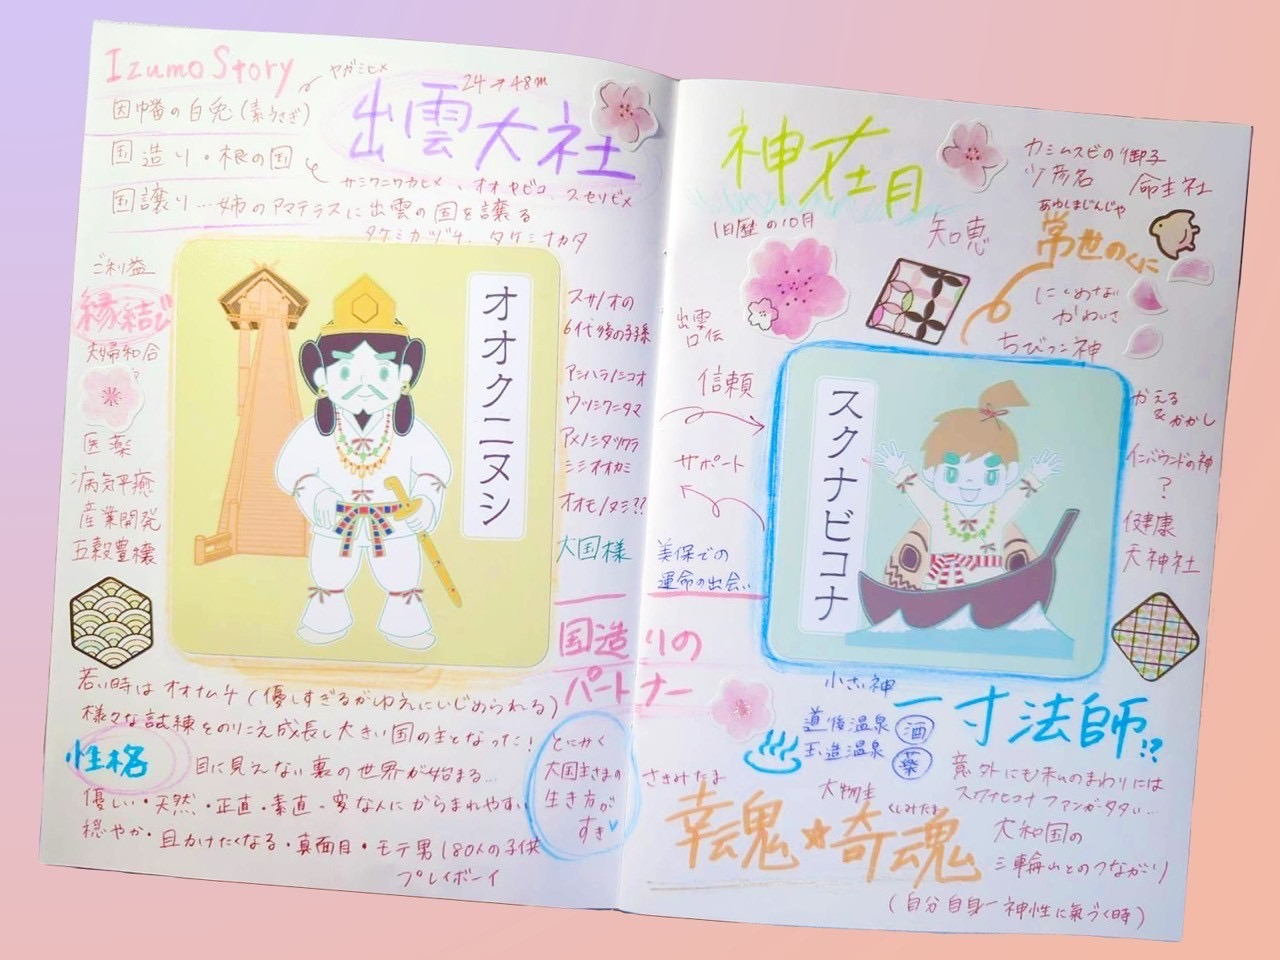 Izumo Story
ヤガミヒメ
因幡の白兎(素うさぎ)
国造り・根の国
国譲り…姉のアマテラスに出雲の国を譲る
タケミカヅチ、タケミナカタ
24→48m
出雲大社
オオヤビコ、スセリビメ
ご利益
縁結び
夫婦和合
医薬
病気平癒
産業開発
五穀豊穣
オオクニヌシ
スサノオの
6代後の子孫
アシハラノシコオ
ウツシクニタマ
オオモノヌシ??
大国様
国造りの
パートナー
若い時はオオナムチ(優しすぎるがゆえにいじめられる)
様々な試練をのりこえ成長し大きい国の主となった!
性格
目に見えない裏の世界が始まる…
優しい・天然・正直・素直・変な人にからまれやすい
穏やか・目かけたくなる・真面目・モテ男180人の子供
プレイボーイ
とにかく
大国主さまの
生き方が
すき
神在月
旧暦の10月
知恵
カミムスビの御子
少彦名 命主社
あゆしまじんじゃ
常世のくに
ちびっこ神
出雲
口伝
信頼
サポート
美保での
運命の出会い
スクナビコナ
かえる
&かかし
インバウンドの神
?
健康
天神社
小さい神
一寸法師!?
道後温泉 酒
玉造温泉 薬
意外にも私のまわりには
スクナヒコナファンガータタい…
さきみたま
大物主
くしみたま
幸魂★奇魂
大和国の
三輪山とのつながり
(自分自身―神性に氣づく時)